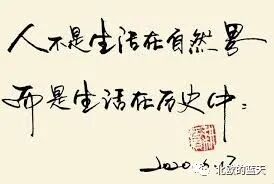 人不是生活在自然界
而是生活在历史中：
2020.6.17
北欧的蓝天